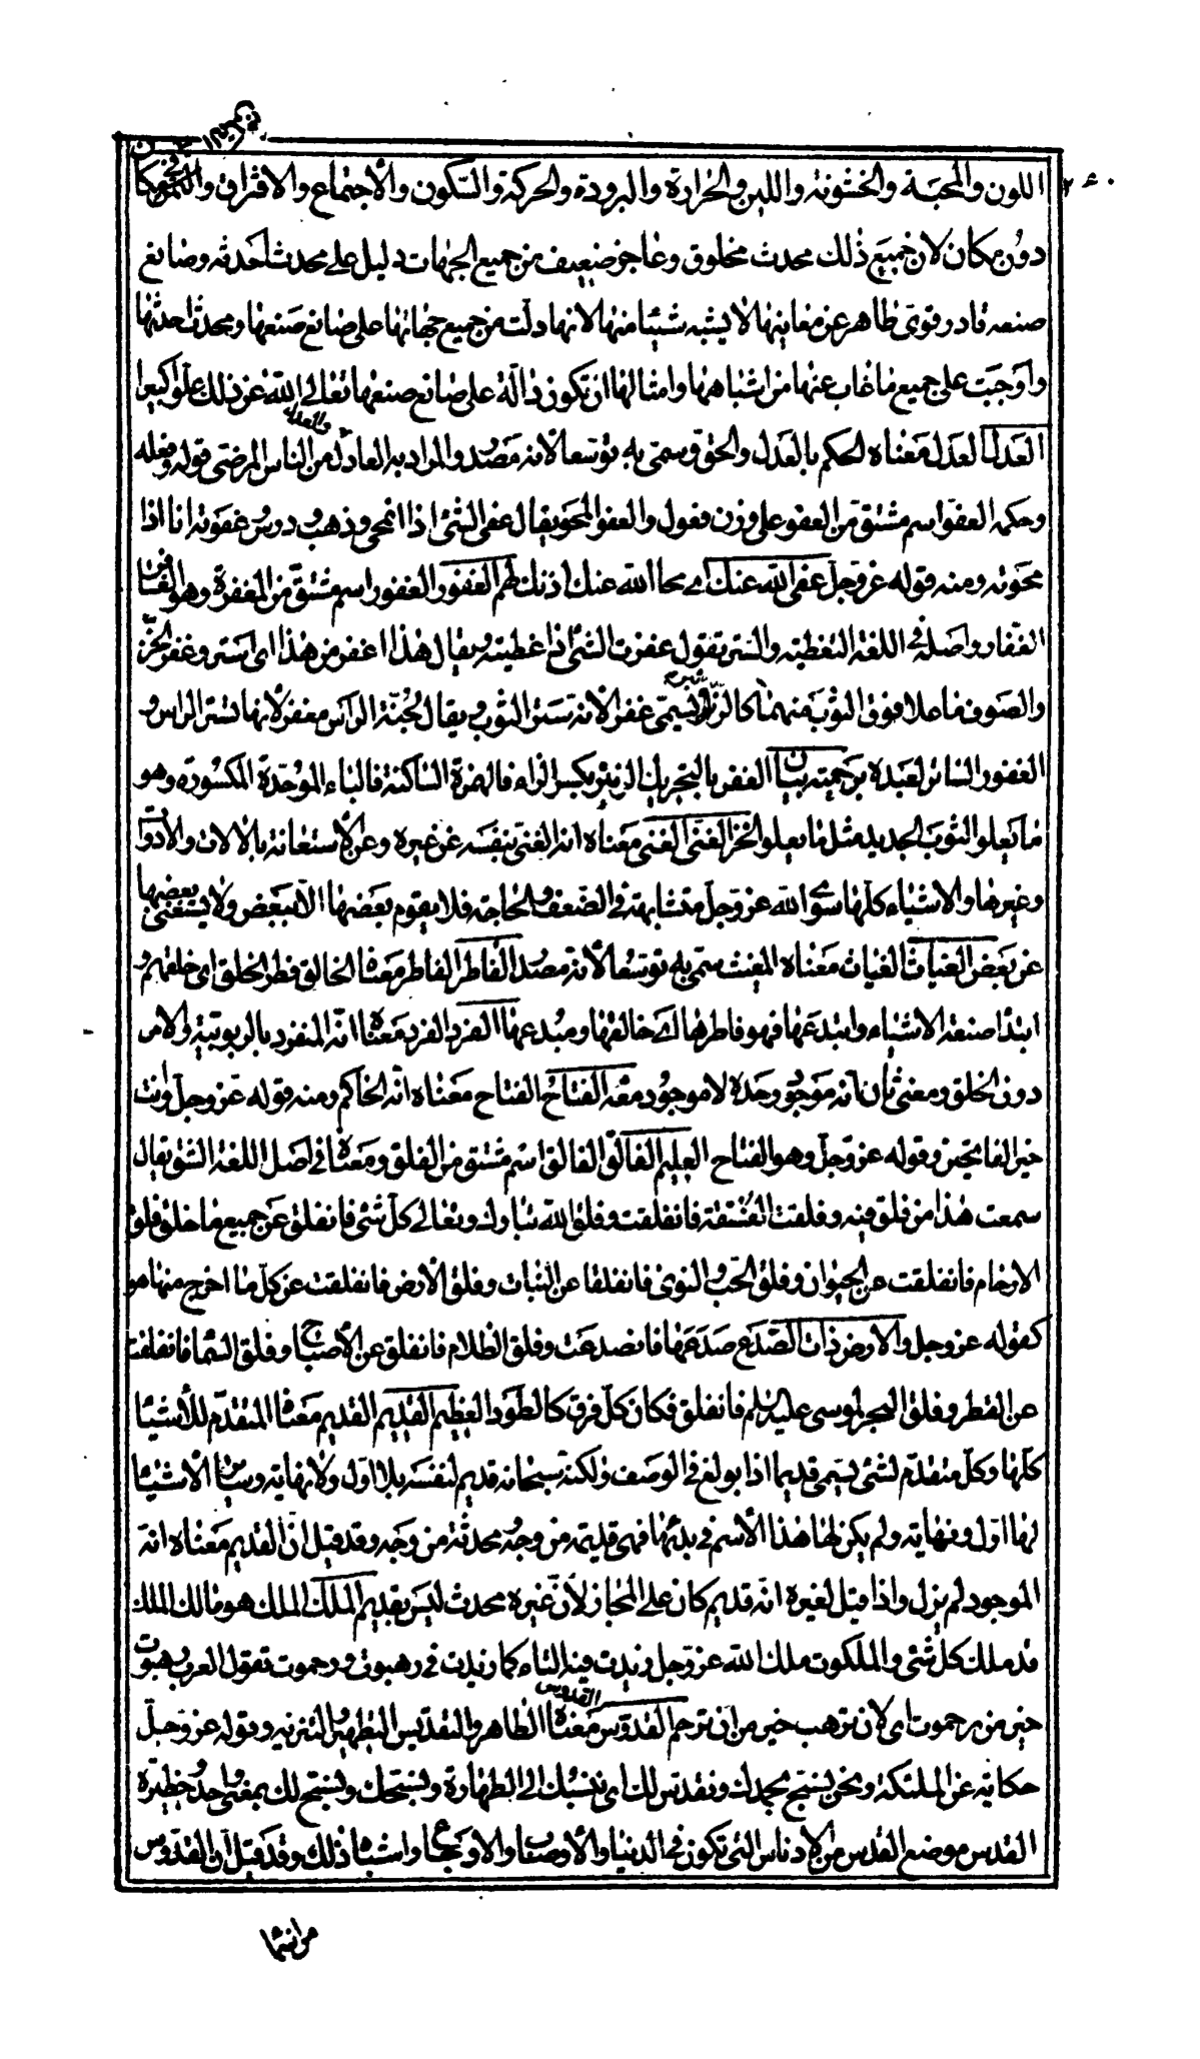 اللون والمحبة والخشونة واللين والحرارة والبرودة والحركة والسكون والاجتماع والافتراق والتمكن في مكان
دون مكان لان جميع ذلك محدث مخلوق وعاجز ضعيف من جميع الجهات دليل على محدث احدثه وصانع
صنعه قادر قوى طاهر عن معانيها لا يشبه شيئا منها لانها دلت من جميع جهاتها على صانع صنعها ومحدث احدثها
واوجبت على جميع ما غاب عنها من اشباهها وامثالها ان تكون دالة على صانع صنعها تعالى الله عن ذلك علوا كبيرا
العدل العدل معناه الحكم بالعدل والحق وسمى به توسعا لانه مصدر والمراد به العادل والعدل من الناس المرضى قوله وفعله
وحكمه العفو اسم مشتق من العفو على وزن فعول والعفو المحو يقال عفى الشئ اذا امحى وذهب ودرس عفوته انا اذا
محوته ومنه قوله عز وجل عفى الله عنك اى محا الله عنك اذنك لهم الغفور الغفور اسم مشتق من المغفرة وهو الغافر
الغفار واصله فى اللغة التغطية والستر تقول غفرت الشئ اذا غطيته ويقال هذا اغفر من هذا اى استر وغفر الخز
والصوف ما علا فوق الثوب منهما كالزئبر يسمى غفر الانه تستر الثوب ويقال لجنة الرأس مغفر لانها تستر الراس و
الغفور الساتر لعبده برحمته بيان الغفر بالتحريك الزئبر بكسر الزاء فالهمزة الساكنة فالباء الموحدة المكسورة وهو
ما يعلو الثوب الجديد مثل ما يعلو الخز الغنى الغنى معناه انه الغنى بنفسه عن غيره وعن الاستعانة بالالات والادوات
وغيرها والاشياء كلها سوى الله عز وجل متشابهة فى الضعف والحاجة فلا يقوم بعضها الا ببعض ولا يستغنى بعضها
عن بعض الغياث الغياث معناه المغيث سمى به توسعا لانه مصدر الفاطر الفاطر معناه الخالق فطر الخلق اى خلقهم و
ابتدا صنعة الاشياء وابتدعها فهو فاطرها اى خالقها ومبدعها الفرد الفرد معناه انه المنفرد بالربوبية والامر
دون الخلق ومعنى ثان انه موجود وحده لا موجود معه الفتاح الفتاح معناه انه الحاكم ومنه قوله عز وجل وانت
خير الفاتحين وقوله عز وجل وهو الفتاح العليم الفالق الفالق اسم مشتق من الفلق ومعناه فى اصل اللغة الشق يقال
سمعت هذا من فلق فيه وفلقت الفستقة فانفلقت وفلق الله تبارك وتعالى كل شئ فانفلق عن جميع ما خلق فلق
الارحام فانفلقت عن الحيوان وفلق الحب والنوى فانفلقا عن النبات وفلق الارض فانفلقت عن كل ما اخرج منها هو
كقوله عز وجل والارض ذات الصدع صدعها فانصدعت وفلق الظلام فانفلق عن الاصباح وفلق السماء فانفلقت
عن القطر وفلق البحر لموسى عليه السلم فانفلق فكان كل فرق كالطود العظيم القديم القديم معناه المتقدم للاشياء
كلها وكل متقدم لشئ يسمى قديما اذا بولغ فى الوصف ولكنه سبحانه قديم لنفسه بلا اول ولا نهاية وساير الاشياء
لها اول ونهاية ولم يكن لها هذا الاسم فى بدئها فهى قديمة من وجه محدثة من وجه وقد قيل ان القديم معناه انه
الموجود لم يزل واذا قيل لغيره انه قديم كان على المجاز لان غيره محدث ليس بقديم الملك الملك هو مالك الملك
قد ملك كل شئ والملكوت ملك الله عز وجل زيدت فيه التاء كما زيدت فى رهبوت ورحموت تقول العرب رهبوت
خير من رحموت اى لان ترهب خير من ان ترحم القدوس القدوس معناه الطاهر والتقديس التطهير والتنزيه وقوله عز وجل
حكاية عن الملئكة ونحن نسبح بحمدك ونقدس لك اى ننسبك الى الطهارة ونسبحك ونسبح لك بمعنى واحد وحظيرة
القدس موضع القدس من الادناس التى تكون فى الدنيا والاوصاب والاوجاع واشباه ذلك وقد قيل ان القدوس
من اسما